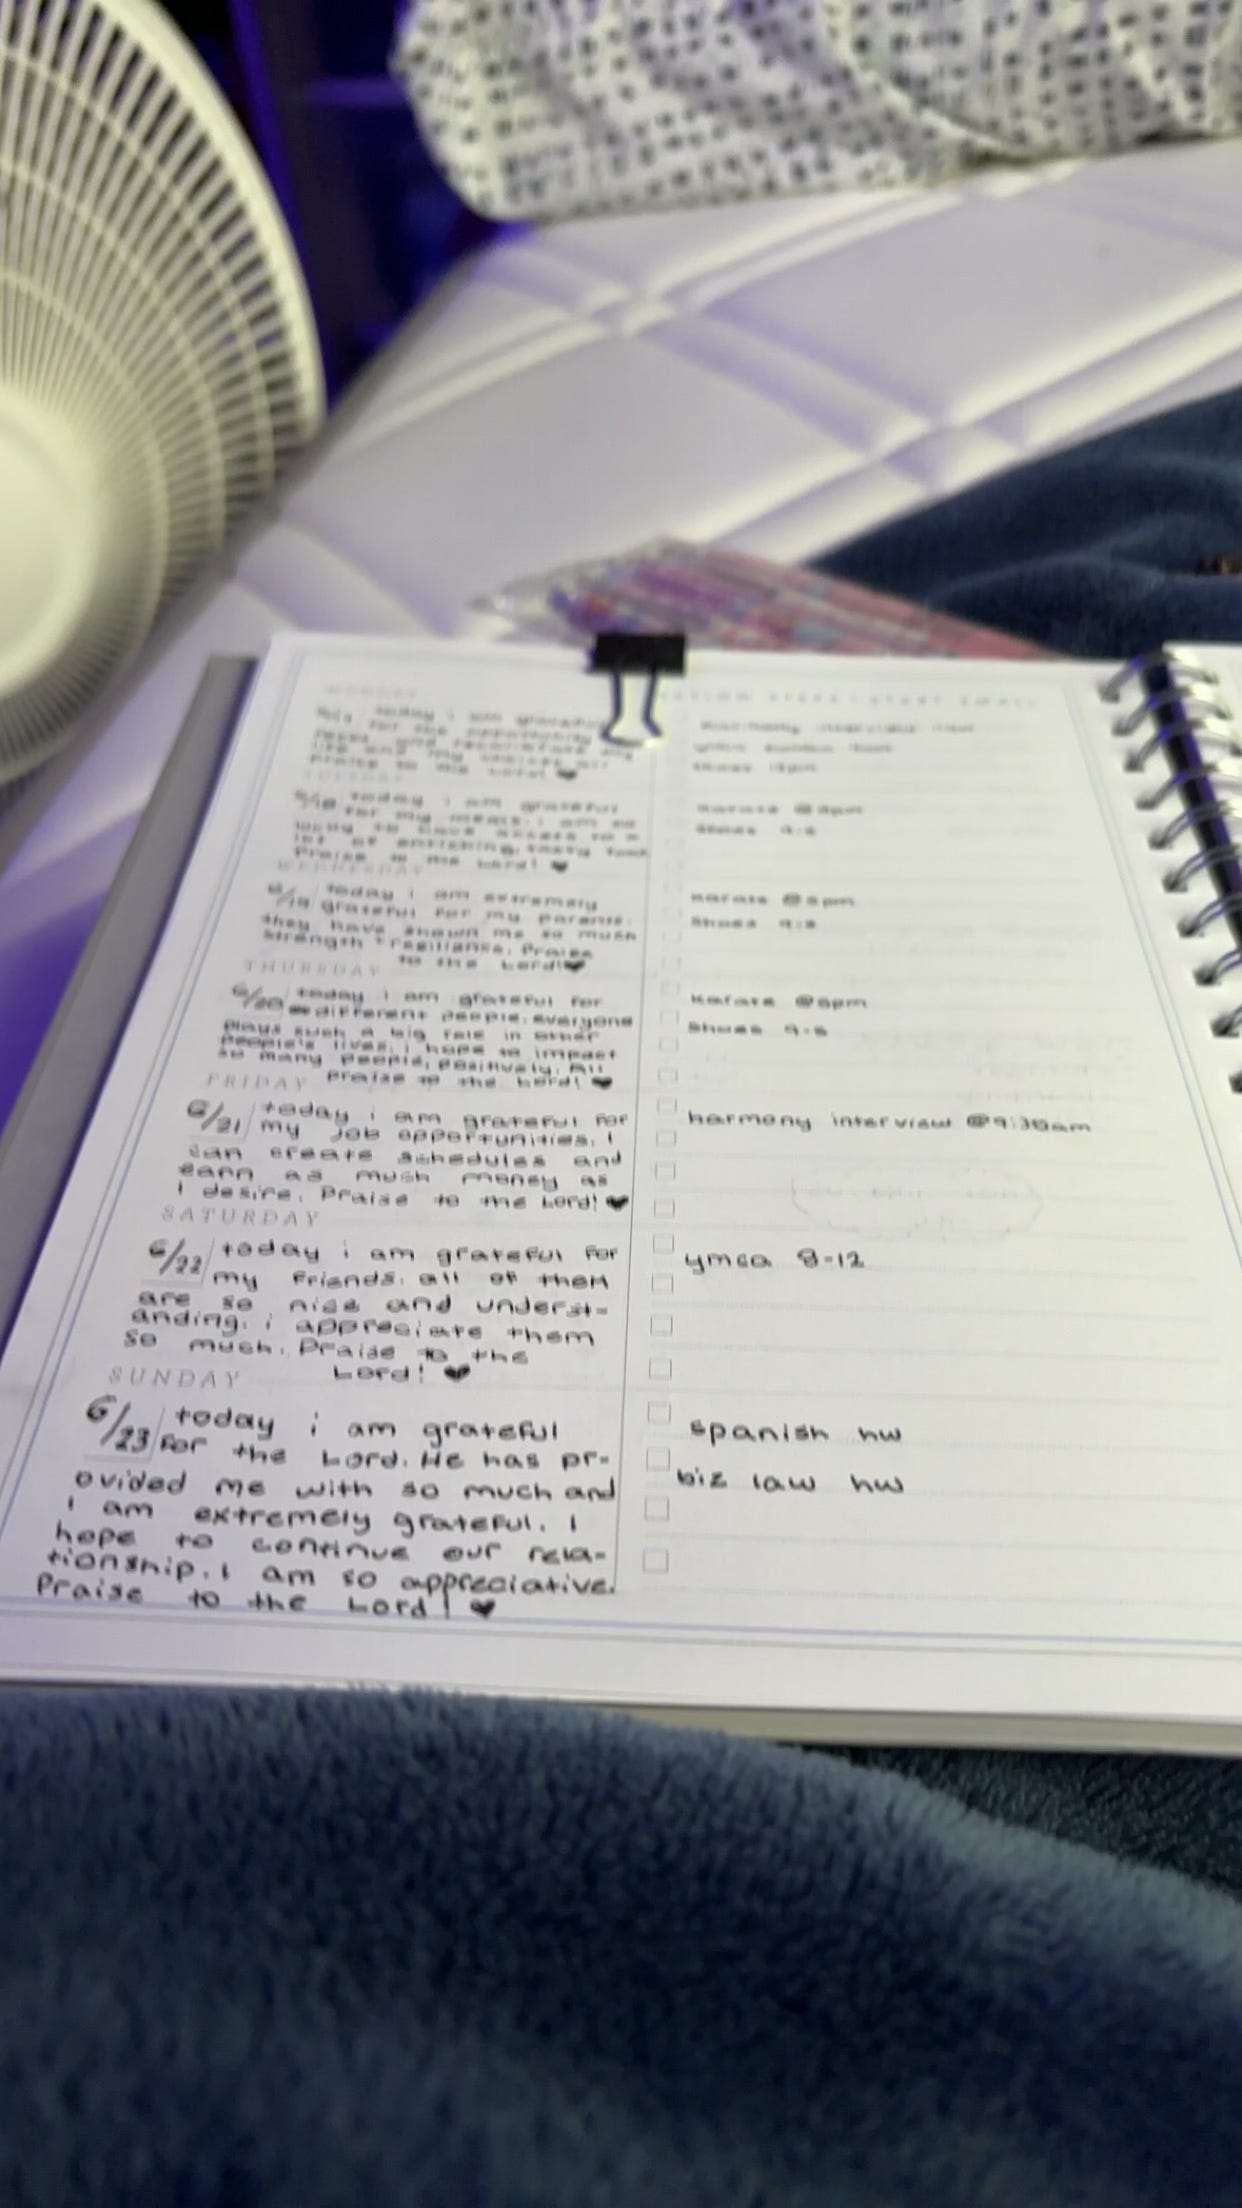 MONDAY
today i am grateful
for the opportunity
praise to the Lord! ♥
TUESDAY
6/18 today i am grateful
for my meals. i am so
lucky to have access to a
lot of enriching, tasty food.
Praise to the Lord! ♥
WEDNESDAY
6/19 today i am extremely
grateful for my parents.
they have shown me so much
strength + resilience. Praise
to the Lord! ♥
THURSDAY
6/20 today i am grateful for
different people. everyone
plays such a big role in other
people's lives. i hope to impact
so many people, positively. All
praise to the Lord! ♥
FRIDAY
6/21 today i am grateful for
my job opportunities. I
can create schedules and
earn as much money as
I desire. Praise to the Lord! ♥
SATURDAY
6/22 today i am grateful for
my friends. all of them
are so nice and underst-
anding. i appreciate them
so much. Praise to the
Lord! ♥
SUNDAY
6/23 today i am grateful
for the Lord. He has pr-
ovided me with so much and
I am extremely grateful. I
hope to continue our rela-
tionship. I am so appreciative.
Praise to the Lord! ♥
ACTION STEPS - START SMALL
karate @
shoes
karate @
shoes
karate @
shoes
harmony interview @9:30am
ymca 8-12
spanish hw
biz law hw